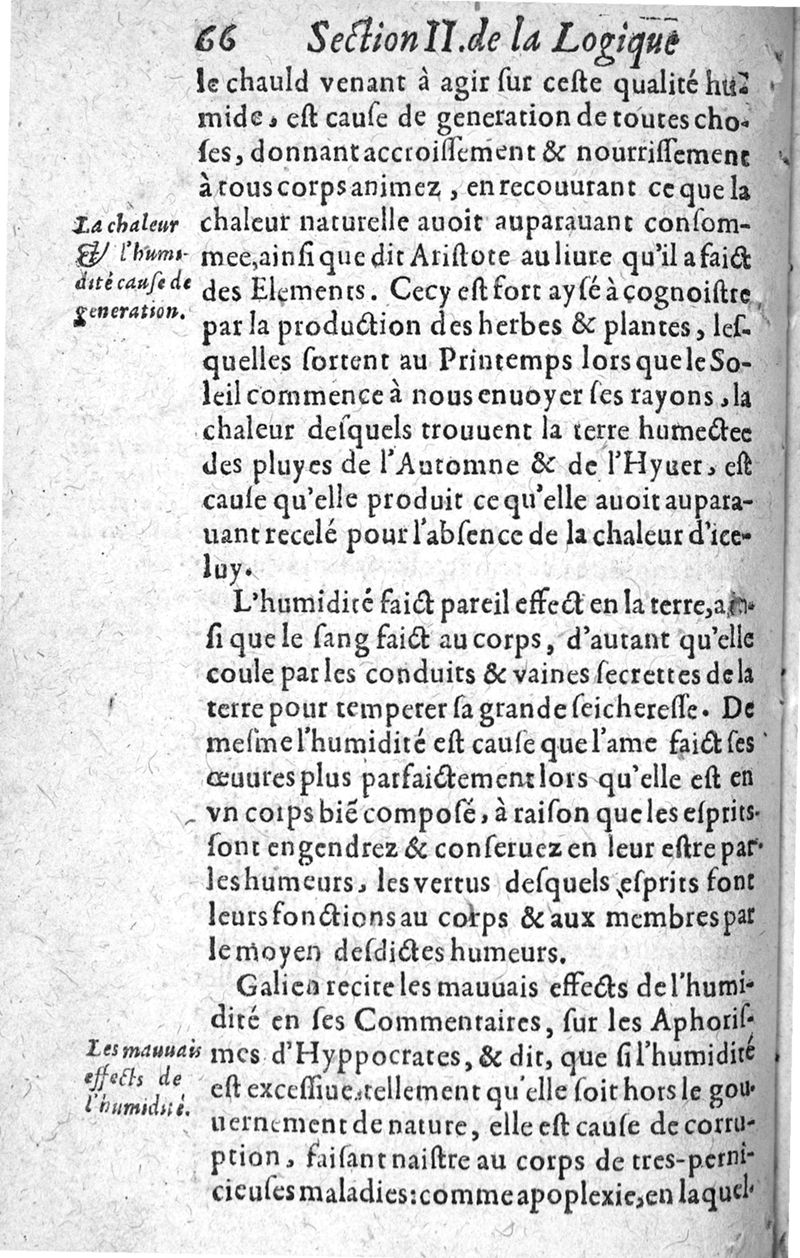 66 Section II. de la Logique
le chauld venant à agir ſur ceſte qualité hu-
mide, eſt cauſe de generation de toutes cho-
ſes, donnant accroiſſement & nourriſſement
à tous corps animez, en recouurant ce que la
La chaleur
& l'humi-
dité cauſe de
generation.
chaleur naturelle auoit auparauant conſom-
mee, ainſi que dit Ariſtote au liure qu'il a faict
des Elements. Cecy eſt fort ayſé à cognoiſtre
par la production des herbes & plantes, leſ-
quelles ſortent au Printemps lors que le So-
leil commence à nous enuoyer ſes rayons, la
chaleur deſquels trouuent la terre humectee
des pluyes de l'Automne & de l'Hyuer, eſt
cauſe qu'elle produit ce qu'elle auoit aupara-
uant recelé pour l'abſence de la chaleur d'ice-
luy.
L'humidité faict pareil effect en la terre, ain-
ſi que le ſang faict au corps, d'autant qu'elle
coule par les conduits & vaines ſecrettes de la
terre pour temperer ſa grande ſeichereſſe. De
meſme l'humidité eſt cauſe que l'ame faict ſes
œuures plus parfaictement lors qu'elle eſt en
vn corps biē compoſé, à raiſon que les eſprits
ſont engendrez & conſeruez en leur eſtre par
les humeurs, les vertus deſquels eſprits font
leurs fonctions au corps & aux membres par
le moyen deſdictes humeurs.
Galien recite les mauuais effects de l'humi-
dité en ſes Commentaires, ſur les Aphoriſ-
Les mauuais
effects de
l'humidité.
mes d'Hyppocrates, & dit, que ſi l'humidité
eſt exceſſiue, tellement qu'elle ſoit hors le gou-
uernement de nature, elle eſt cauſe de corru-
ption, faiſant naiſtre au corps de tres-perni-
cieuſes maladies: comme apoplexie, en laquel-